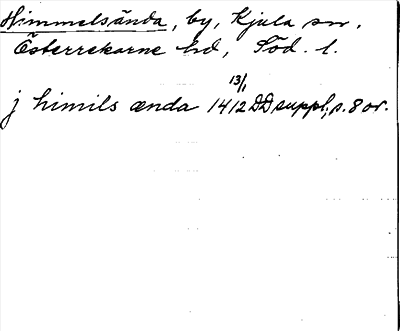 Himmelsända, by, Kjula sn.
Österrekarne hd, Söd. l.
13/1
j himils ænda 1412 DD suppl., s. 8 or.